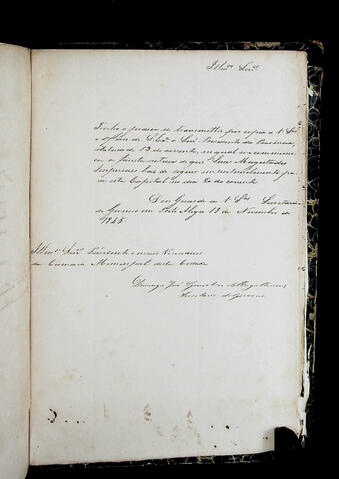 Illmos Snres
Tenho o prazer de transmittir por copia a V. Sas
o officio de S. Exa o Snr. Presidente da Provincia
datado de 13 do corrente, no qual me communi
ca a fausta noticia de que Suas Magestades
Imperiaes hão de seguir
esta Capital no dia 20 do corrente
Deos Guarde a V. Sas Secretaria
do Governo em Porto Alegre 13 de Novembro de
1845.
Illmos Snres Presidente e mais Vereadores
da Camara Municipal desta Cidade
Domingos José Gonçalves de Magalhaens
Secretario do Governo